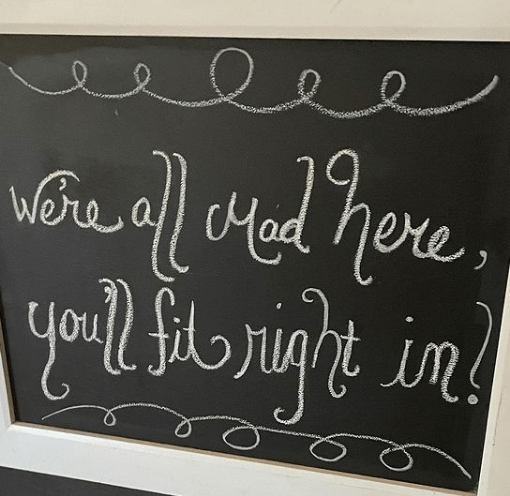 We're all Mad here,
you'll fit right in!